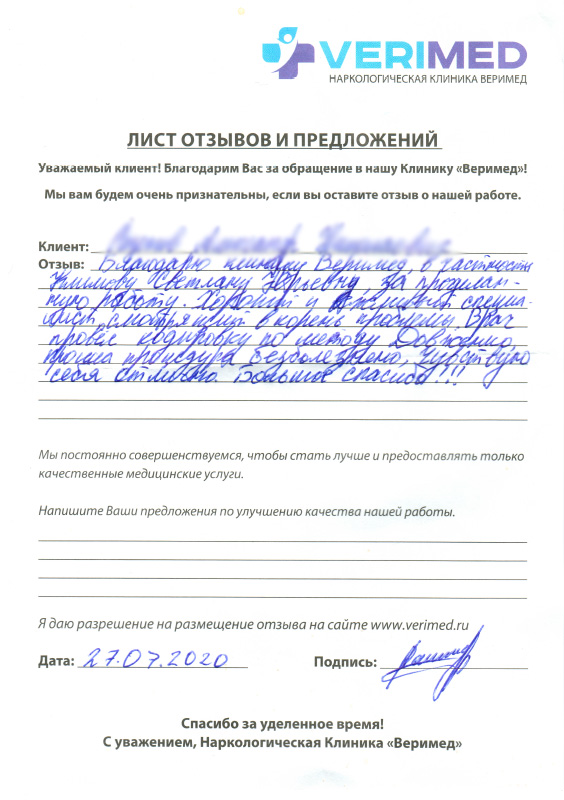 VERIMED
НАРКОЛОГИЧЕСКАЯ КЛИНИКА ВЕРИМЕД
ЛИСТ ОТЗЫВОВ И ПРЕДЛОЖЕНИЙ
Уважаемый клиент! Благодарим Вас за обращение в нашу Клинику «Веримед»!
Мы вам будем очень признательны, если вы оставите отзыв о нашей работе.
Клиент:
Отзыв: Благодарю клинику Веримед, в частности
Светлану Юрьевну, за проделан-
ную работу. Хороший и специа-
лист, смотрящий в корень проблемы. Врач
провёл кодировку по методу Довженко,
прошла процедура безболезненно, чувствую
себя отлично. Большое спасибо!!!
Мы постоянно совершенствуемся, чтобы стать лучше и предоставлять только
качественные медицинские услуги.
Напишите Ваши предложения по улучшению качества нашей работы.
Я даю разрешение на размещение отзыва на сайте www.verimed.ru
Дата: 27.07.2020 Подпись:
Спасибо за уделенное время!
С уважением, Наркологическая Клиника «Веримед»